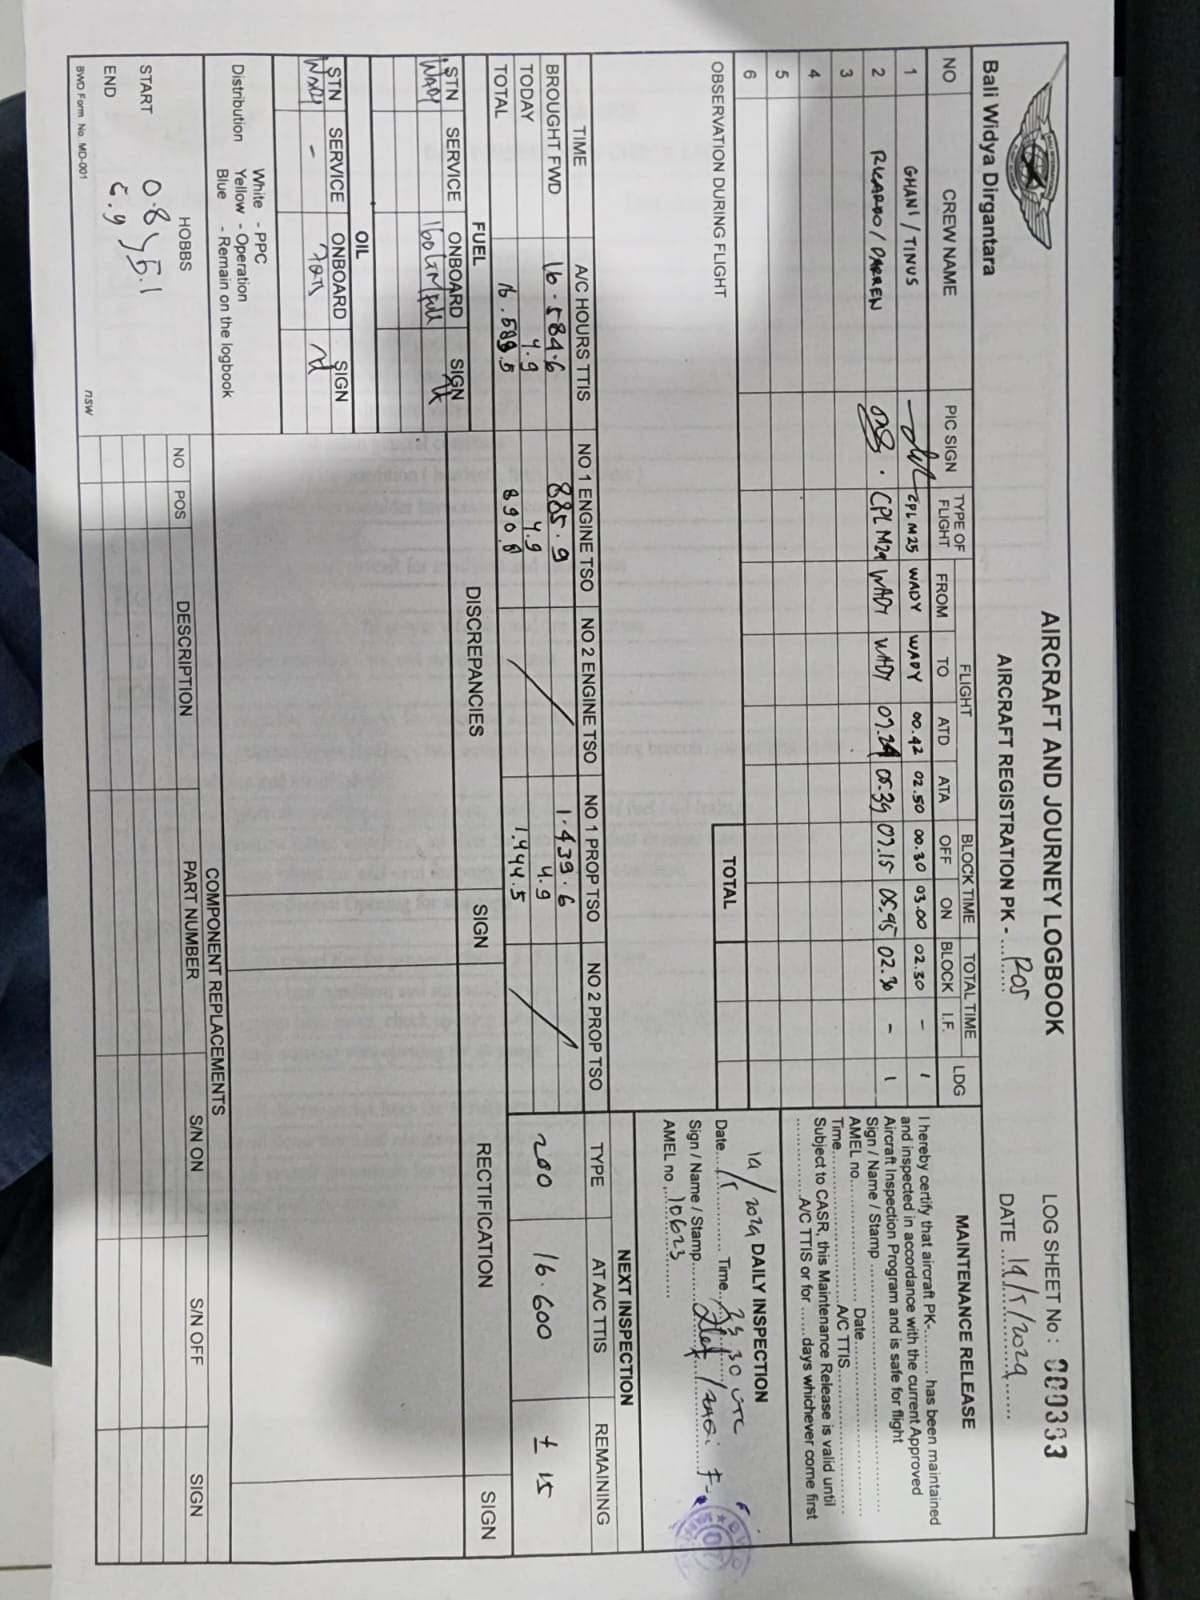 Bali Widya Dirgantara
AIRCRAFT AND JOURNEY LOGBOOK
AIRCRAFT REGISTRATION PK - ROS
LOG SHEET No : 000333
DATE
NO CREW NAME PIC SIGN TYPE OF FLIGHT FLIGHT BLOCK TIME TOTAL TIME LDG
FROM TO ATD ATA OFF ON BLOCK I.F.
1 GHANI / TINUS CPL M25 WADY WADY 00.42 02.50 00.30 03.00 02.30 - 1
2 RICARDO / DARREN WADY WADY 02.30 - 1
3
4
5
6
TOTAL
OBSERVATION DURING FLIGHT
MAINTENANCE RELEASE
I hereby certify that aircraft PK-......... has been maintained
and inspected in accordance with the current Approved
Aircraft Inspection Program and is safe for flight
Sign / Name / Stamp
AMEL no. Date
Time A/C TTIS
Subject to CASR, this Maintenance Release is valid until
A/C TTIS or for ...... days whichever come first
DAILY INSPECTION
Date Time 30 UTC
Sign / Name / Stamp
AMEL no. 10623
TIME A/C HOURS TTIS NO 1 ENGINE TSO NO 2 ENGINE TSO NO 1 PROP TSO NO 2 PROP TSO
BROUGHT FWD 16.584.6 885.9 1.439.6
TODAY 4.9 4.9 4.9
TOTAL 890.8 1.444.5
NEXT INSPECTION
TYPE AT A/C TTIS REMAINING
200 16.600 ± 15
FUEL
STN SERVICE ONBOARD SIGN
WADY
OIL
STN SERVICE ONBOARD SIGN
-
DISCREPANCIES SIGN RECTIFICATION SIGN
Distribution White - PPC
Yellow - Operation
Blue - Remain on the logbook
HOBBS
START 0.8
END 5.9
5.1
COMPONENT REPLACEMENTS
NO POS DESCRIPTION PART NUMBER S/N ON S/N OFF SIGN
BWD Form No. MD-001
nsw